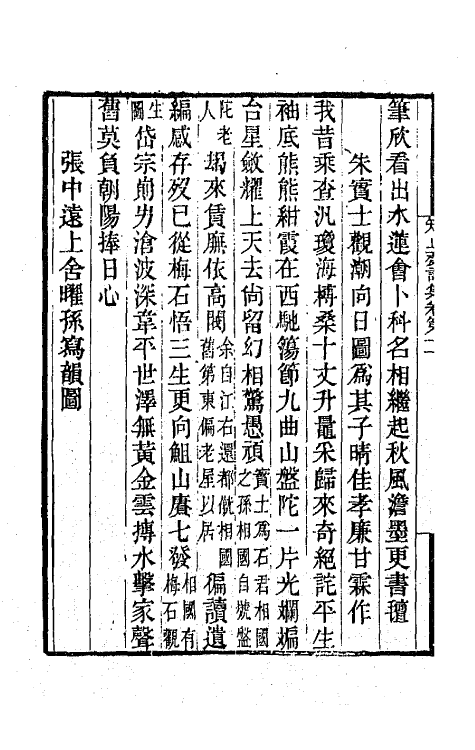 筆欣看出水蓮會卜科名相繼起秋風澹墨更書壇
朱賓士觀潮向日圖爲其子晴佳孝廉甘霖作
我昔乘查汎瓊海搏桑十丈升鼂采歸來奇絕詫平生
袖底熊熊紺霞在西馳蕩節九曲山盤陀一片光斕斒
台星斂耀上天去尙留幻相驚愚頑賓士爲石君相國之孫相國自號盤
陀老人朅來賃廡依高閎余自江右還都僦相國舊第東偏老屋以居徧讀遺
編感存歿已從梅石悟三生更向鯤山賡七發相國有梅石觀
生圖岱宗崩屴滄波深韋平世澤無黃金雲摶水擊家聲
舊莫負朝陽捧日心
張中遠上舍曜孫寫韻圖
知止齋詩集卷第十一